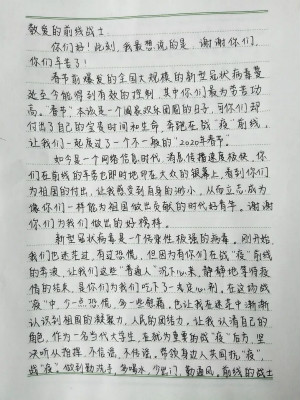 敬爱的前线战士:
你们好!此刻,我最想说的是,谢谢你们,
你们辛苦了!
春节前爆发的全国大规模的新型冠状病毒蔓
延至今能得到有效的控制,其中你们最为劳苦功
高。"春节"本该是一个阖家欢乐团圆的日子,可你们却
付出了自己的宝贵时间和生命,奔跑在战"疫"前线,
让我们一起度过了一个不一般的"2020年春节"。
如今是一个网络信息时代,消息传播速度极快,你
们在前线的辛苦也即时地印在大众的银幕上,看到你们
为祖国的付出,让我感受到自身的渺小,从而立志成为
像你们一样能为祖国做出贡献的时代好青年。谢谢
你们为我们做出的好榜样。
新型冠状病毒是一个传染性极强的病毒。刚开始,
我们也迷茫,有过恐慌,但因为有你们在战"疫"前线
的奔波,让我们这些"普通人"沉下心来,静静地等待疫
情的结束,是你们为我们吃下了一个定心剂,在这场战
"疫"中,少一点恐慌,多一些慰藉。也让我在迷茫中渐渐
认识到祖国的凝聚力,人民的团结力,让我认清自己的
角色,作为一名当代大学生,在就为重要的战"疫"后方,坚
决听从指挥,不信谣,不传谣。带领身边人共同抗"疫",
战"疫"。做到勤洗手,多喝水,少出门,勤通风。前线的战士